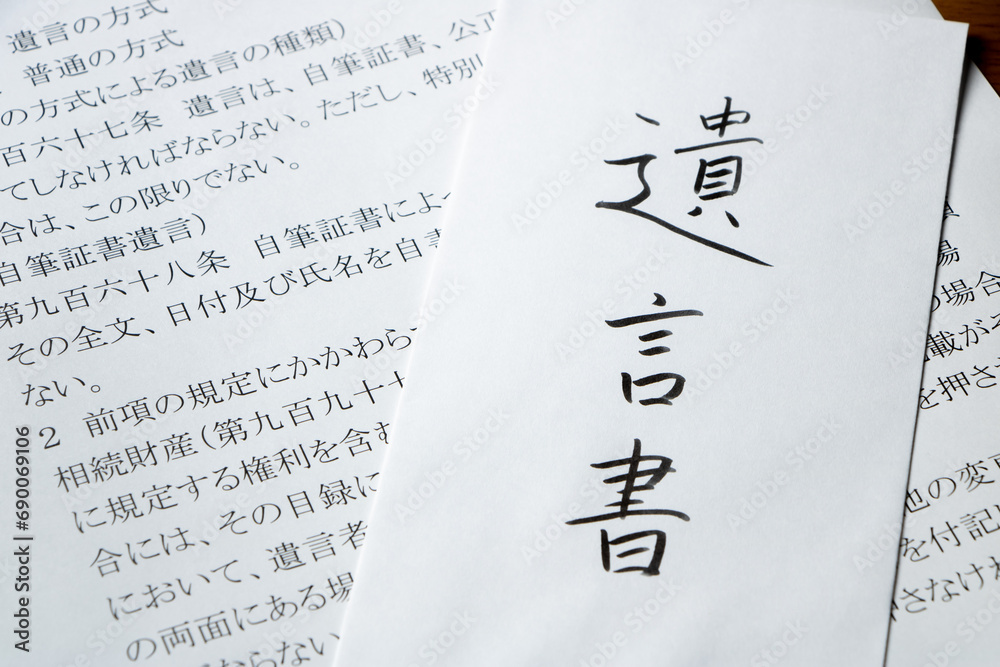 遺言の方式
普通の方式
の方式による遺言の種類)
百六十七条 遺言は、自筆証書、公正
てしなければならない。ただし、特別
合は、この限りでない。
自筆証書遺言)
第九百六十八条 自筆証書によ
その全文、日付及び氏名を自書
ない。
2 前項の規定にかかわら
相続財産(第九百九十
に規定する権利を含む
合には、その目録に
において、遺言者
の両面にある場
ならない
遺言書
の場合
載が
を押さ
他の変更
を付記
さなけれ
Adobe Stock | #690069106